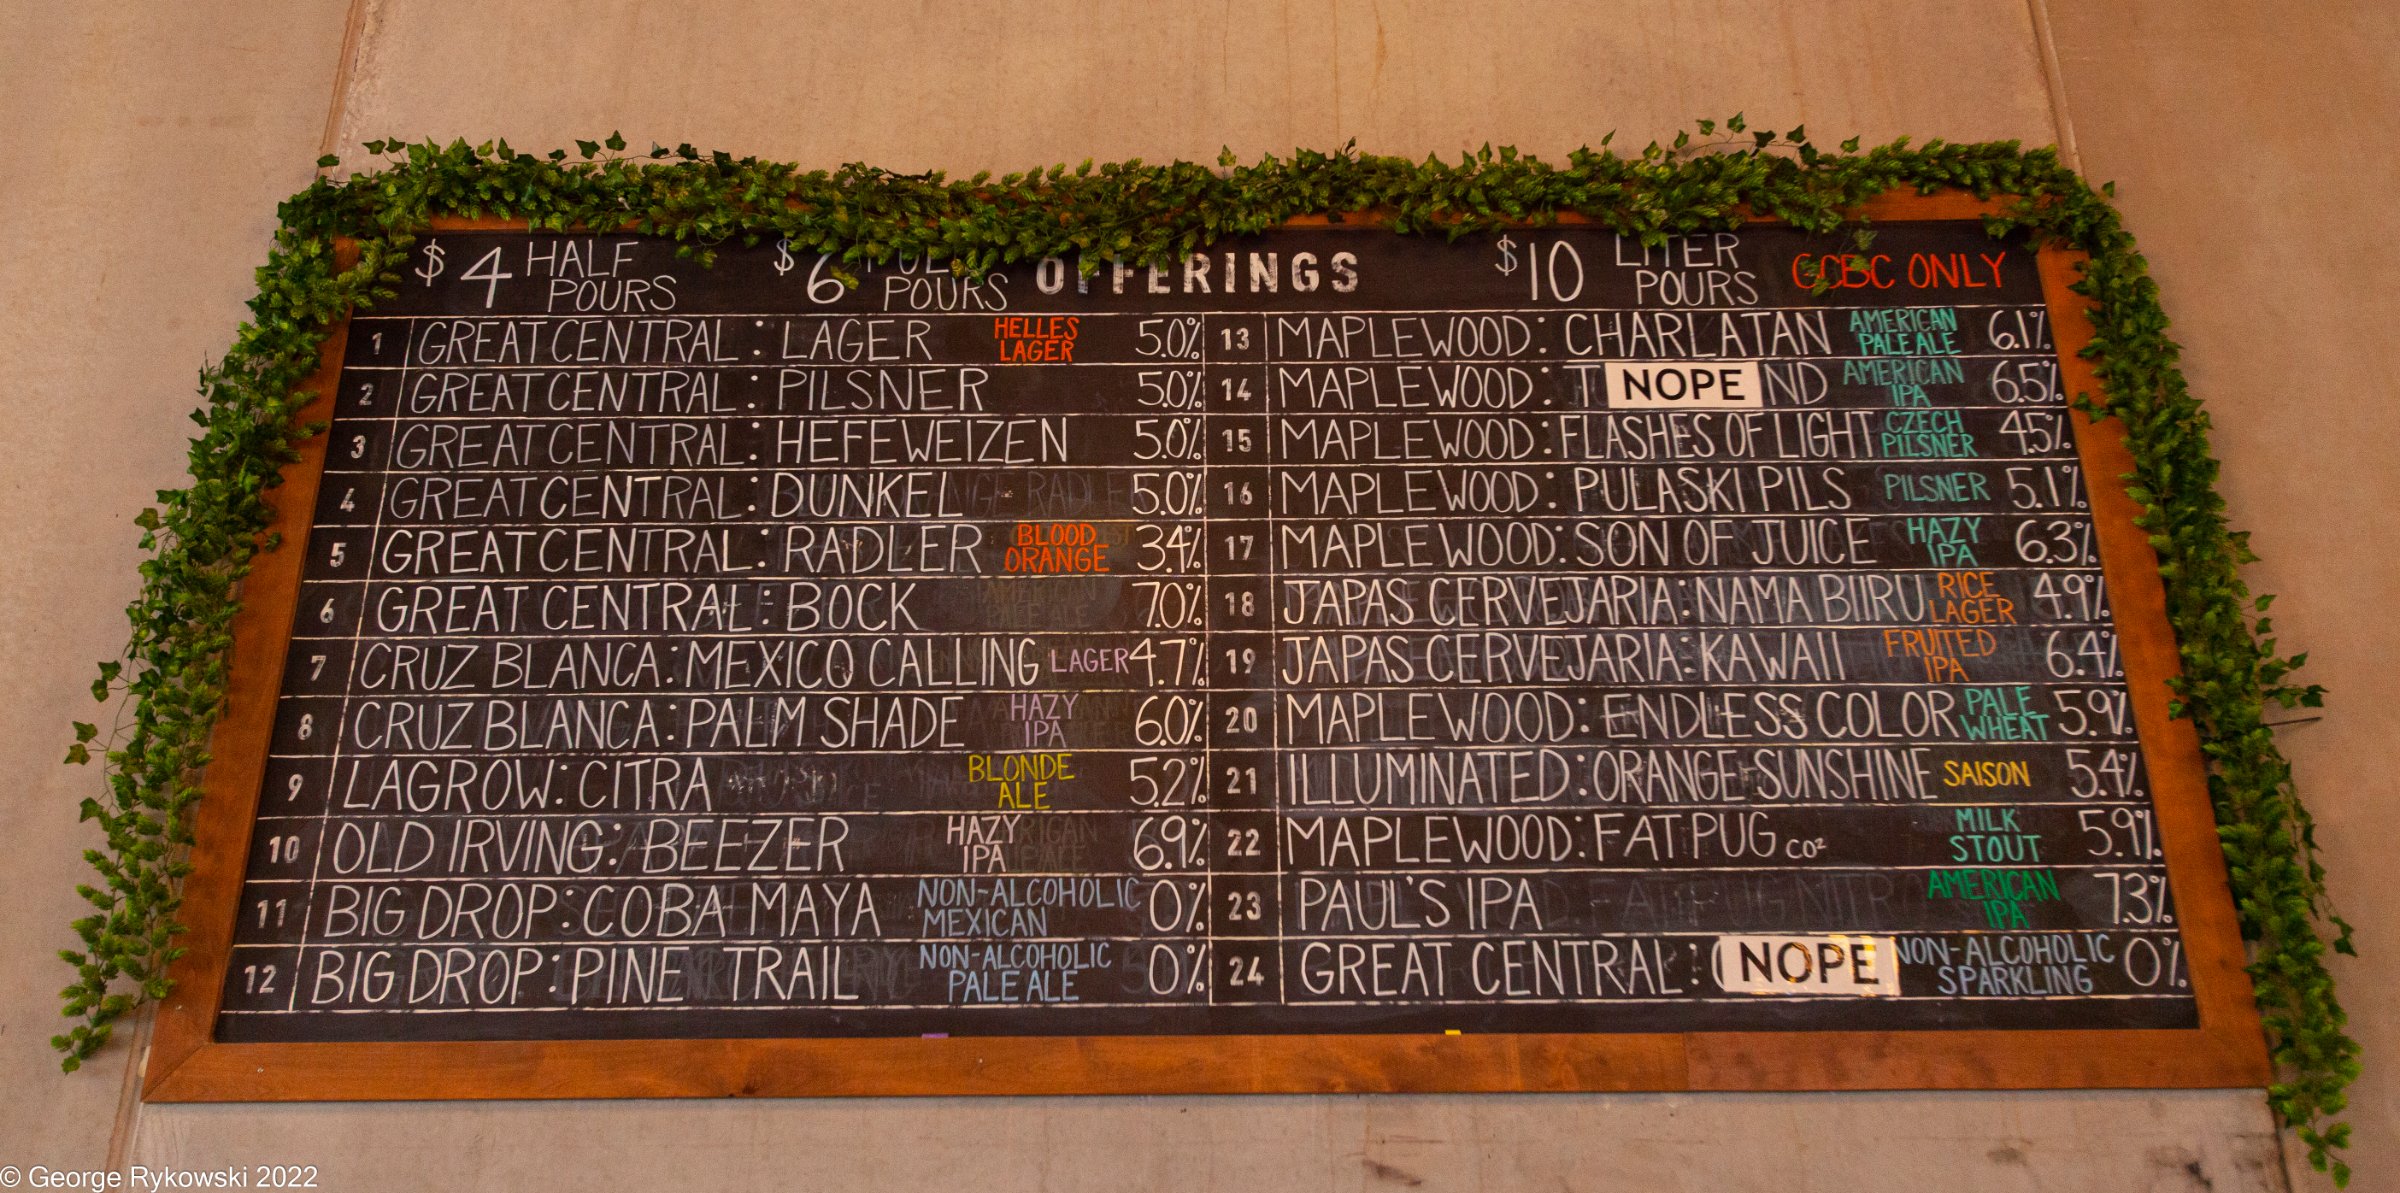 $4 HALF POURS $6 POURS OFFERINGS $10 LITER POURS GCBC ONLY
1 GREAT CENTRAL: LAGER HELLES LAGER 5.0%
2 GREAT CENTRAL: PILSNER 5.0%
3 GREAT CENTRAL: HEFEWEIZEN 5.0%
4 GREAT CENTRAL: DUNKEL 5.0%
5 GREAT CENTRAL: RADLER BLOOD ORANGE 3.4%
6 GREAT CENTRAL: BOCK 7.0%
7 CRUZ BLANCA: MEXICO CALLING LAGER 4.7%
8 CRUZ BLANCA: PALM SHADE HAZY IPA 6.0%
9 LAGROW: CITRA BLONDE ALE 5.2%
10 OLD IRVING: BEEZER HAZY IPA 6.9%
11 BIG DROP: COBA MAYA NON-ALCOHOLIC MEXICAN 0%
12 BIG DROP: PINE TRAIL NON-ALCOHOLIC PALE ALE 0%
13 MAPLEWOOD: CHARLATAN AMERICAN PALE ALE 6.1%
14 MAPLEWOOD: NOPE AMERICAN IPA 6.5%
15 MAPLEWOOD: FLASHES OF LIGHT CZECH PILSNER 4.5%
16 MAPLEWOOD: PULASKI PILS PILSNER 5.1%
17 MAPLEWOOD: SON OF JUICE HAZY IPA 6.3%
18 JAPAS CERVEJARIA: NAMA BIIRU RICE LAGER 4.9%
19 JAPAS CERVEJARIA: KAWAII FRUITED IPA 6.4%
20 MAPLEWOOD: ENDLESS COLOR PALE WHEAT 5.9%
21 ILLUMINATED: ORANGE SUNSHINE SAISON 5.4%
22 MAPLEWOOD: FAT PUG CO² MILK STOUT 5.9%
23 PAUL'S IPA AMERICAN IPA 7.3%
24 GREAT CENTRAL: NOPE NON-ALCOHOLIC SPARKLING 0%
© George Rykowski 2022